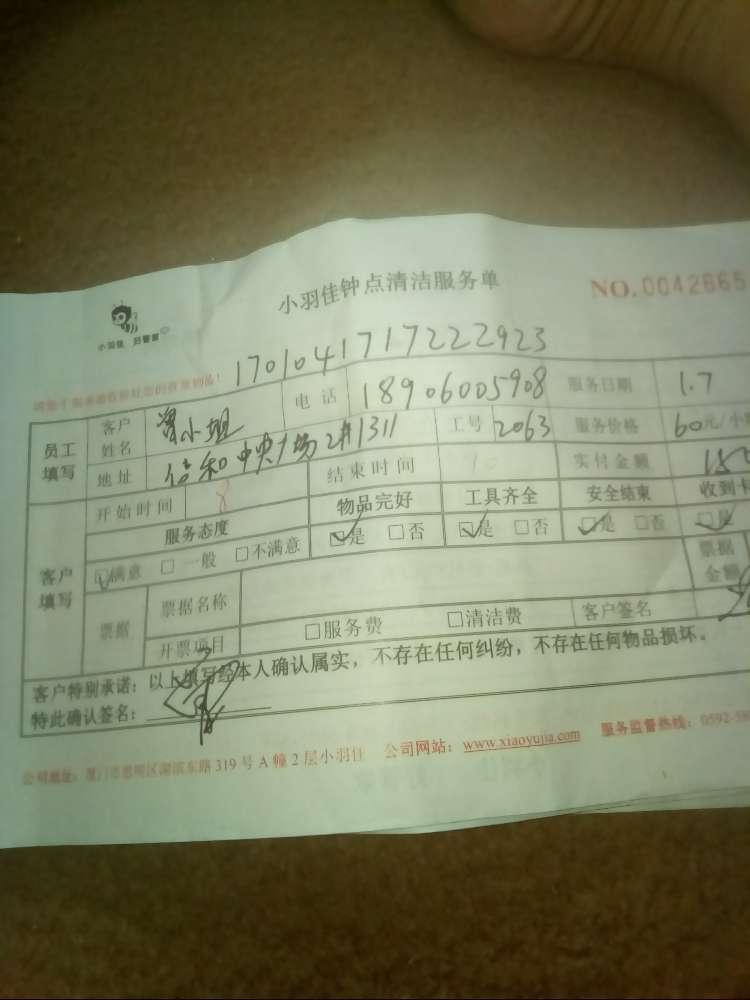 小羽佳钟点清洁服务单
NO.0042665
小羽佳 好管家
1701041717222923
员工填写 客户姓名 曾小姐 电话 18906005908 服务日期 1.7
地址 信和中央广场2#1311 工号 2063 服务价格 60元/小
客户填写 开始时间 8 结束时间 10 实付金额 150
服务态度 物品完好 工具齐全 安全结束 收到卡
☑满意 □一般 □不满意 ☑是 □否 ☑是 □否 ☑是 □否 □是
票据 票据名称 票据金额
开票项目 □服务费 □清洁费 客户签名
客户特别承诺：以上填写经本人确认属实，不存在任何纠纷，不存在任何物品损坏。
特此确认签名：
公司地址：厦门市思明区湖滨东路319号A幢2层小羽佳 公司网站：www.xiaoyujia.com 服务监督热线：0592-58